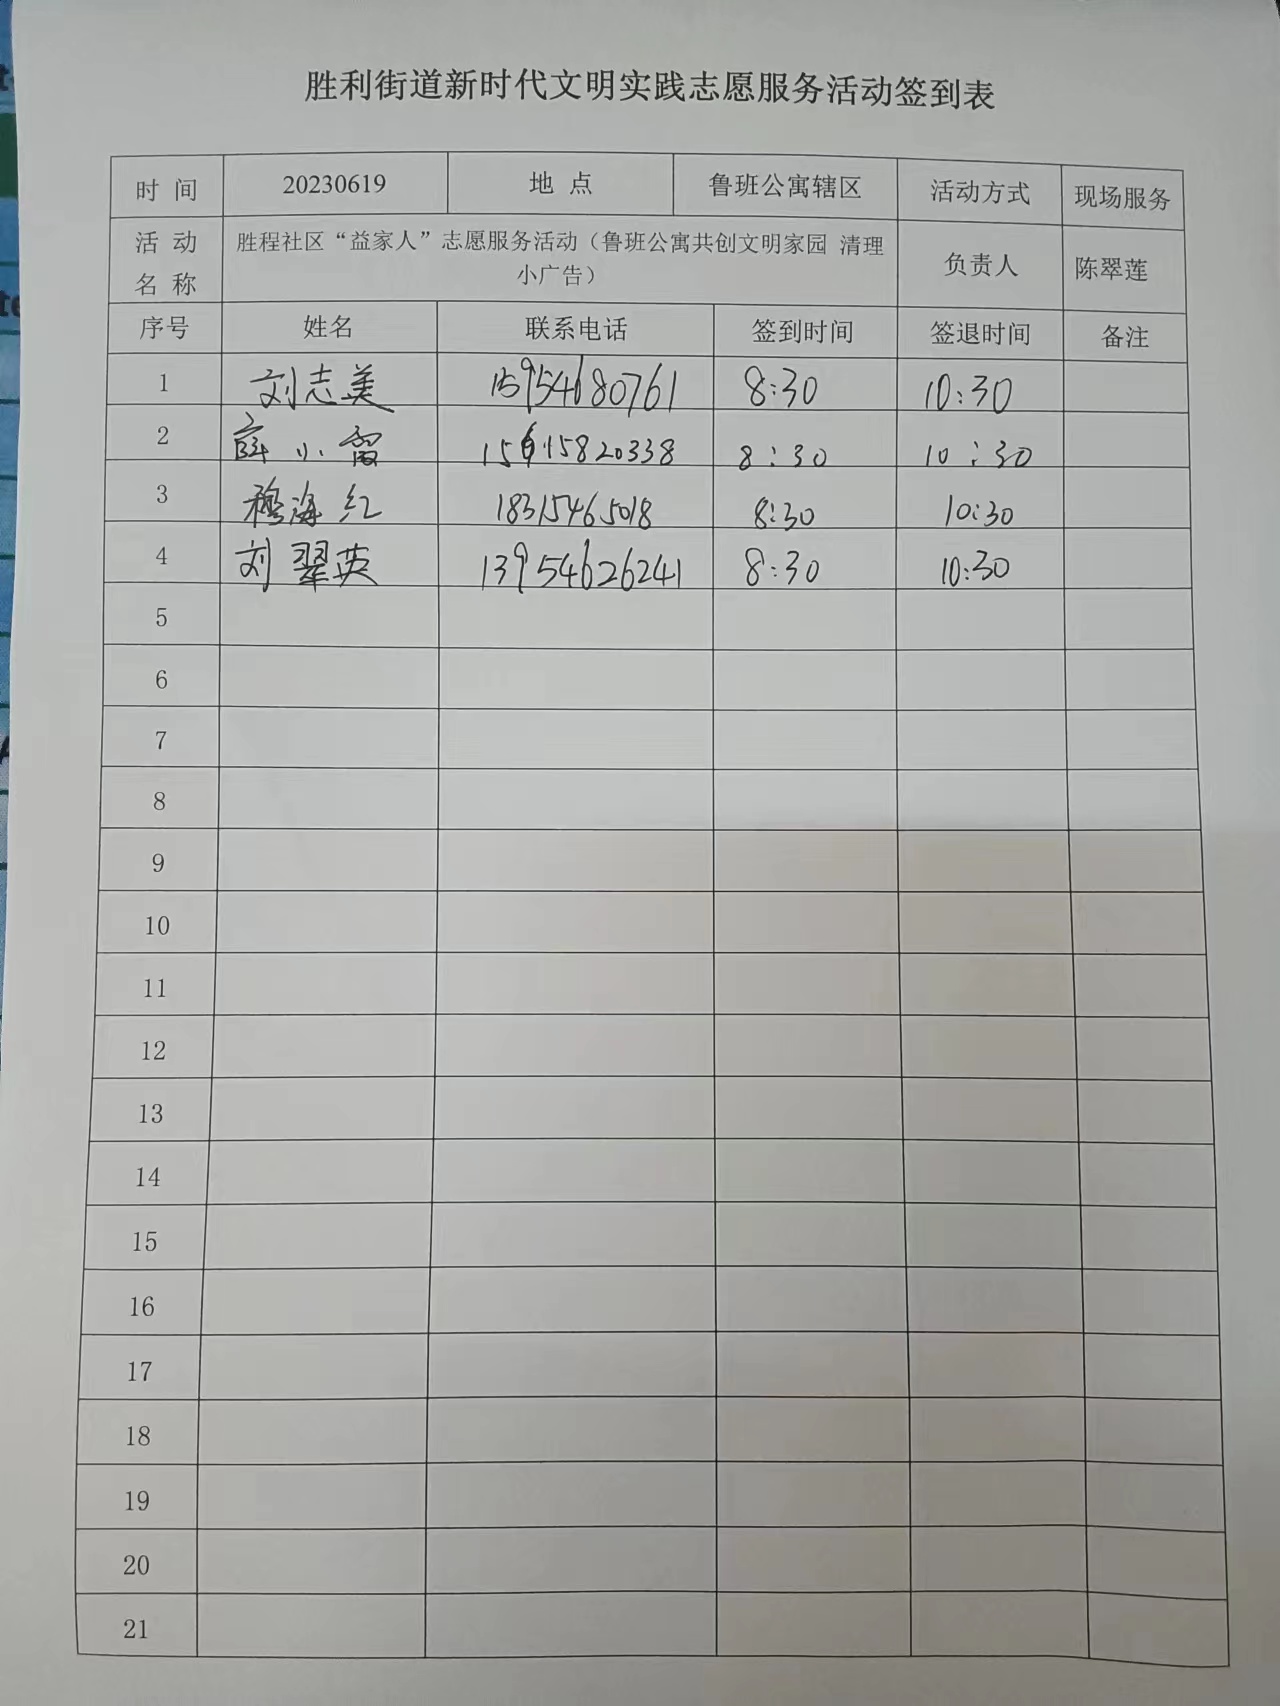 胜利街道新时代文明实践志愿服务活动签到表
时 间 20230619 地 点 鲁班公寓辖区 活动方式 现场服务
活 动 名 称 胜程社区“益家人”志愿服务活动（鲁班公寓共创文明家园 清理
小广告） 负责人 陈翠莲
序号 姓名 联系电话 签到时间 签退时间 备注
1 刘志美 15954680761 8:30 10:30
2 薛小雷 8:30 10:30
3 穆海红 18315465018 8:30 10:30
4 刘翠英 13954626241 8:30 10:30
5
6
7
8
9
10
11
12
13
14
15
16
17
18
19
20
21